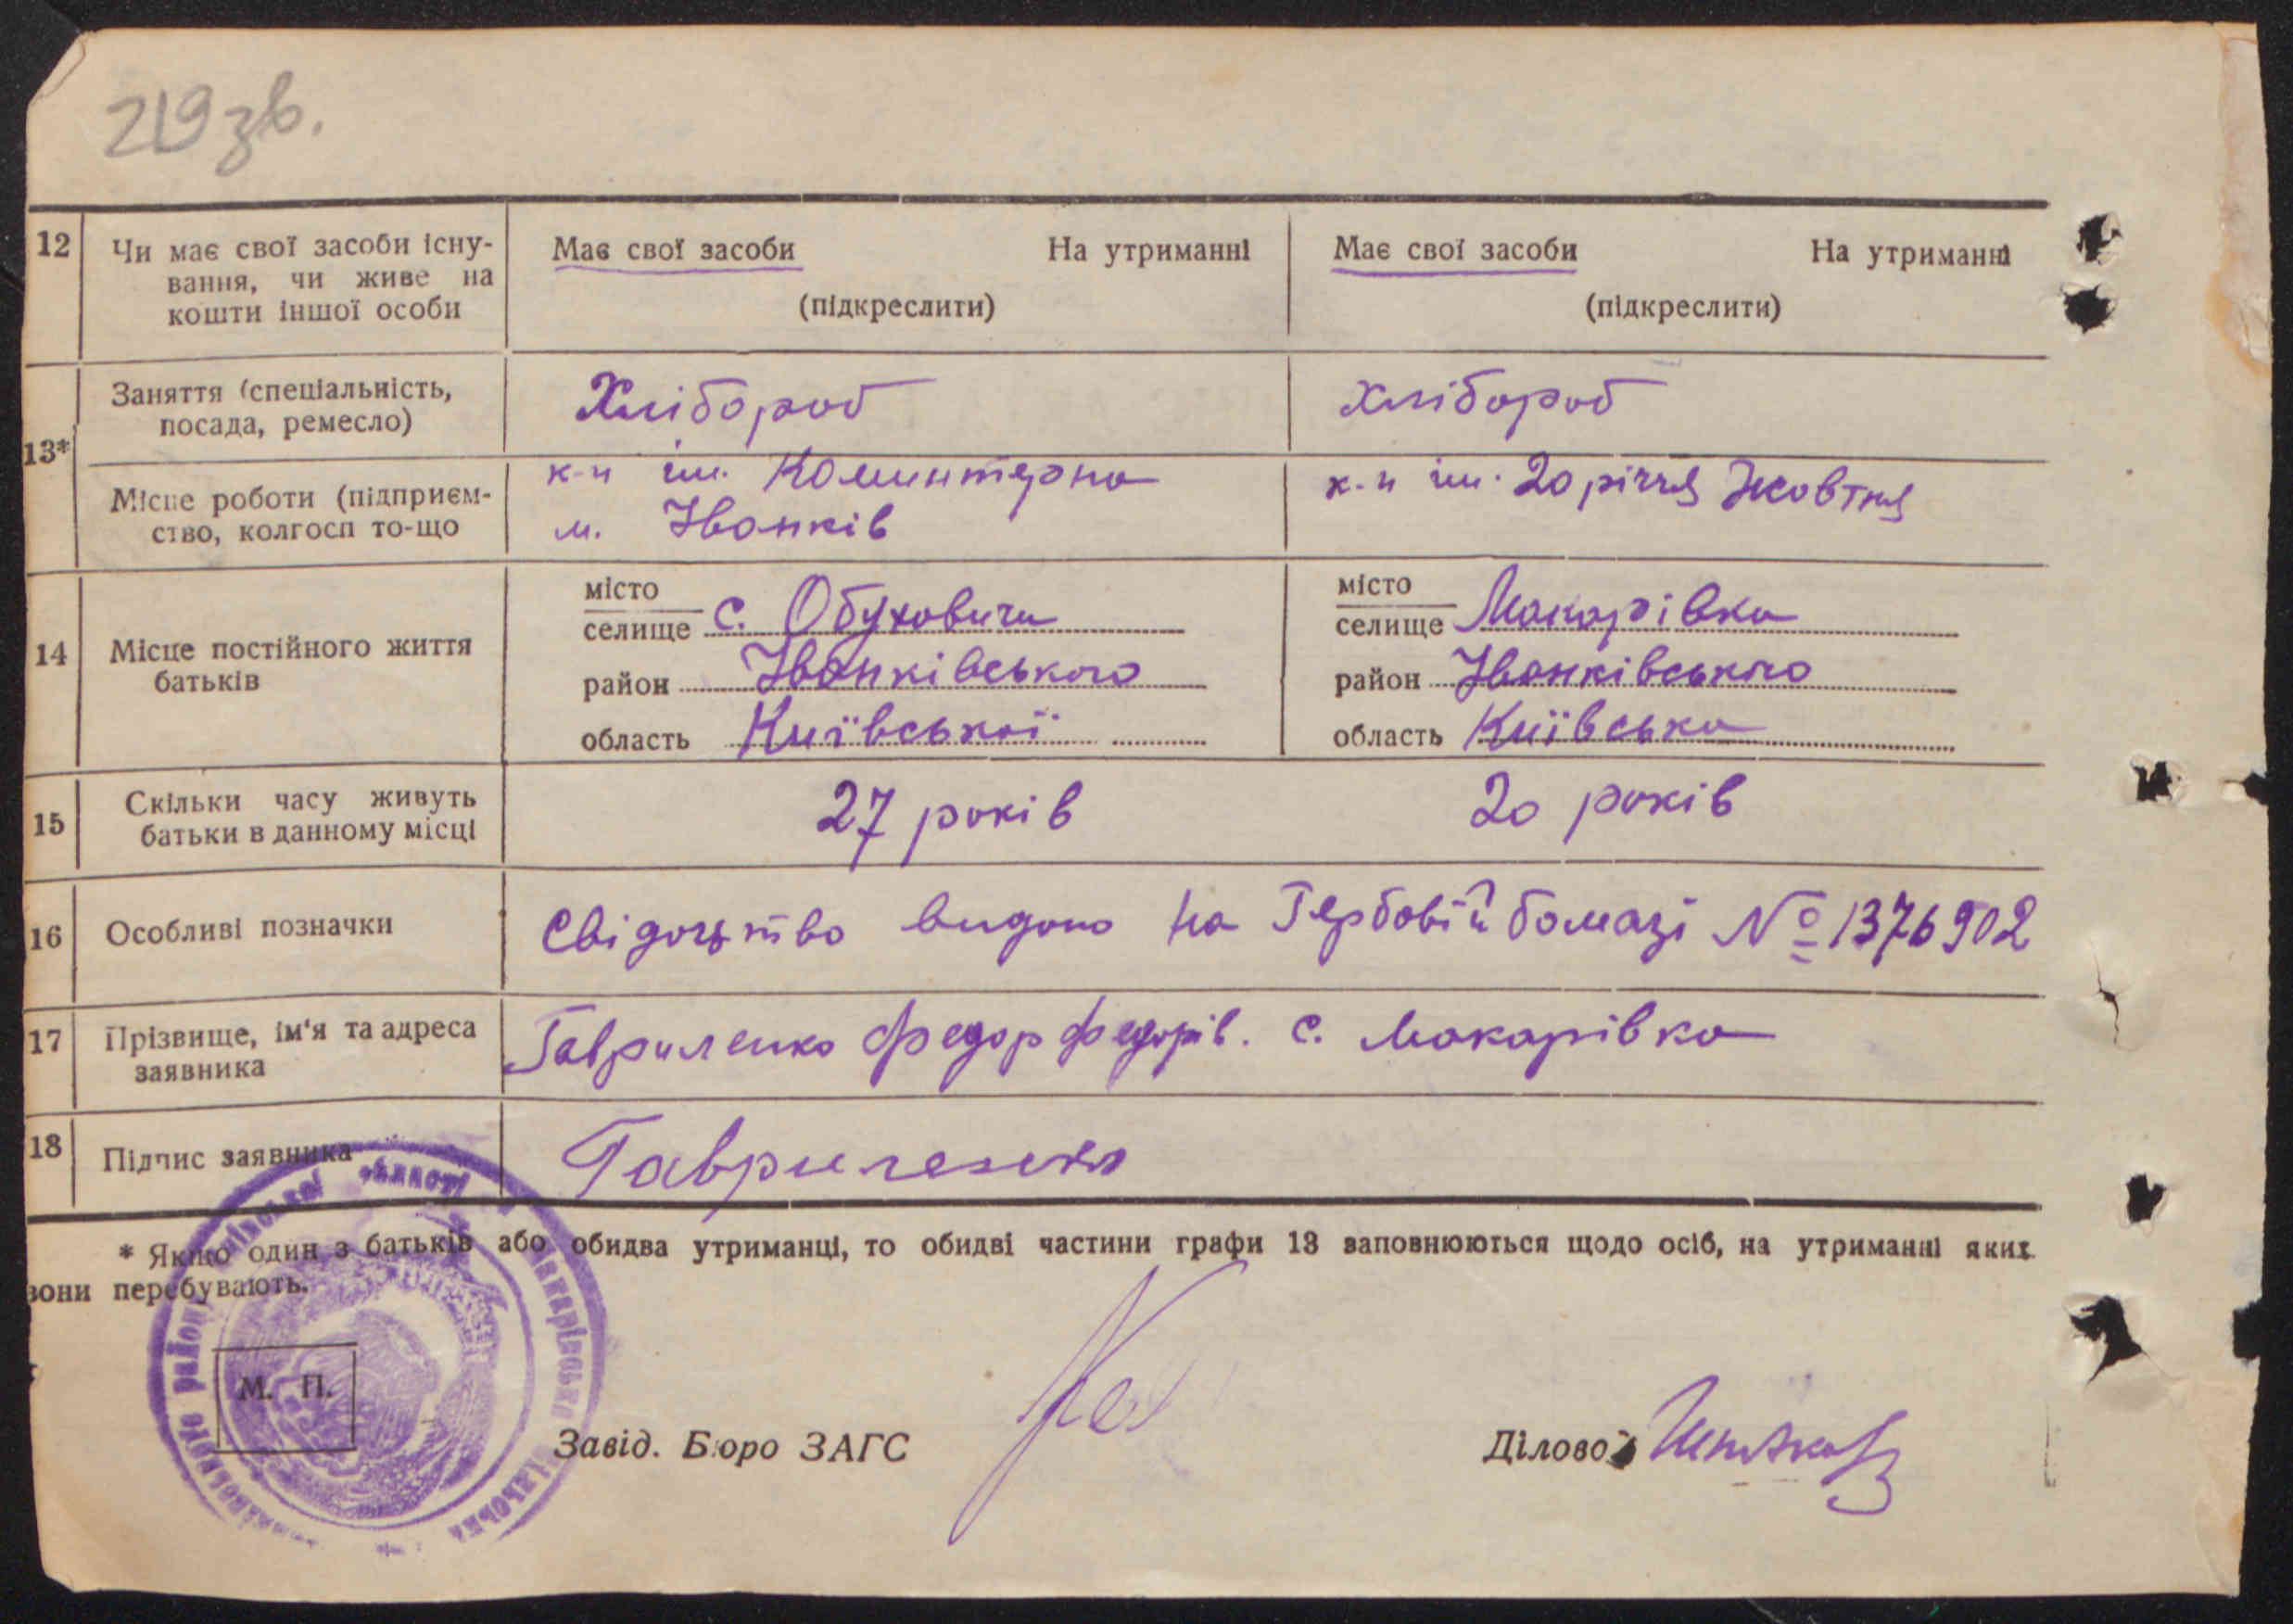 219 зв.
12 Чи має свої засоби існу- Має свої засоби На утриманні Має свої засоби На утриманні
вання, чи живе на
кошти іншої особи (підкреслити) (підкреслити)
Заняття (спеціальність, Хлібороб хлібороб
посада, ремесло)
13*
Місце роботи (підприєм- к-п ім. Комінтерна к-п ім. 20 річчя Жовтня
ство, колгосп то-що м. Іванків
місто місто
селище с. Обуховичи селище Макарівка
14 Місце постійного життя район Іванківського район Іванківського
батьків
область Київської область Київська
15 Скільки часу живуть 27 років 20 років
батьки в данному місці
16 Особливі позначки Свідоцтво видано на Гербовій бомазі № 1376902
17 Прізвище, ім'я та адреса Гавриленко Федор Федорів. с. Макарівка
заявника
18 Підпис заявника Гавриленко
* Якщо один з батьків або обидва утриманці, то обидві частини графи 13 заповнюються щодо осіб, на утриманні яких
вони перебувають.
М. П.
Завід. Бюро ЗАГС Діловод